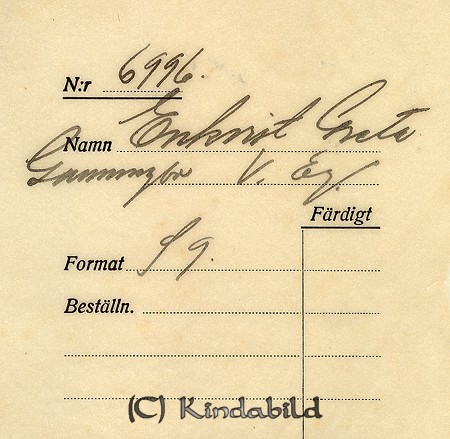 N:r 6996.
Namn Enkvist Greta
V. Ey.
Färdigt
Format
Beställn.
(C) Kindabild